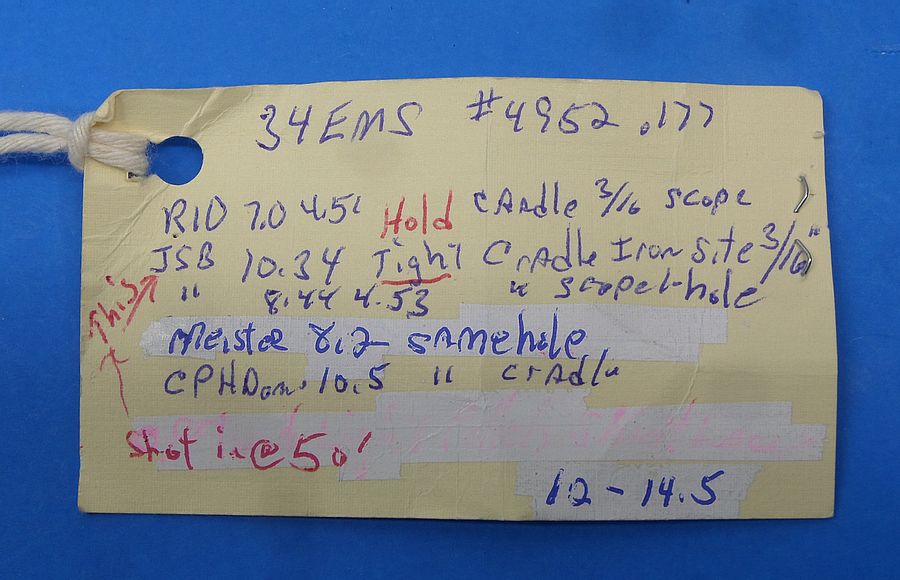 34 EMS #4952 .177
R10 7.0 4.51 Hold CrAdle 3/16 scope
JSB 10.34 Tight CrAdle Iron Site 3/16"
This " 8.44 4.53 " scope 1-hole
Meister 8.2 sAme hole
CPHDom. 10.5 " crAdle
Shot in @ 50'
12 - 14.5